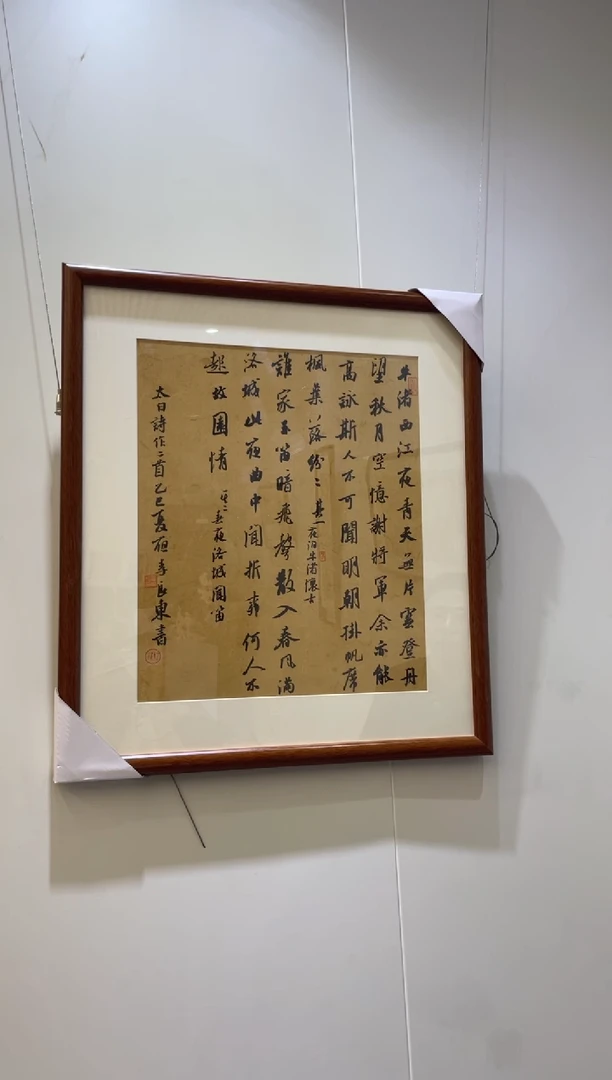 牛渚西江夜青天無片雲登舟
望秋月空憶謝將軍余亦能
高詠斯人不可聞明朝掛帆席
楓葉落紛〻 其一夜泊牛渚懷古
誰家玉笛暗飛聲散入春風滿
洛城此夜曲中聞折柳何人不
起故園情 其二春夜洛城聞笛
太白詩作二首乙巳夏夜李良東書